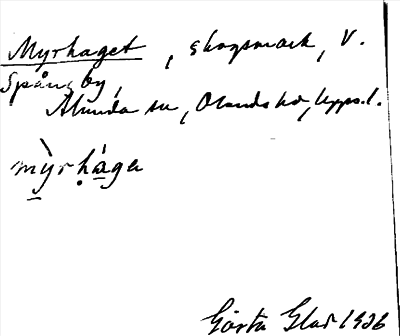 Myrhaget, skogsmark, V.
Spångby,
Alunda sn, Olands hd, Upps. l.
mỳrhága
Gösta Glad 1926